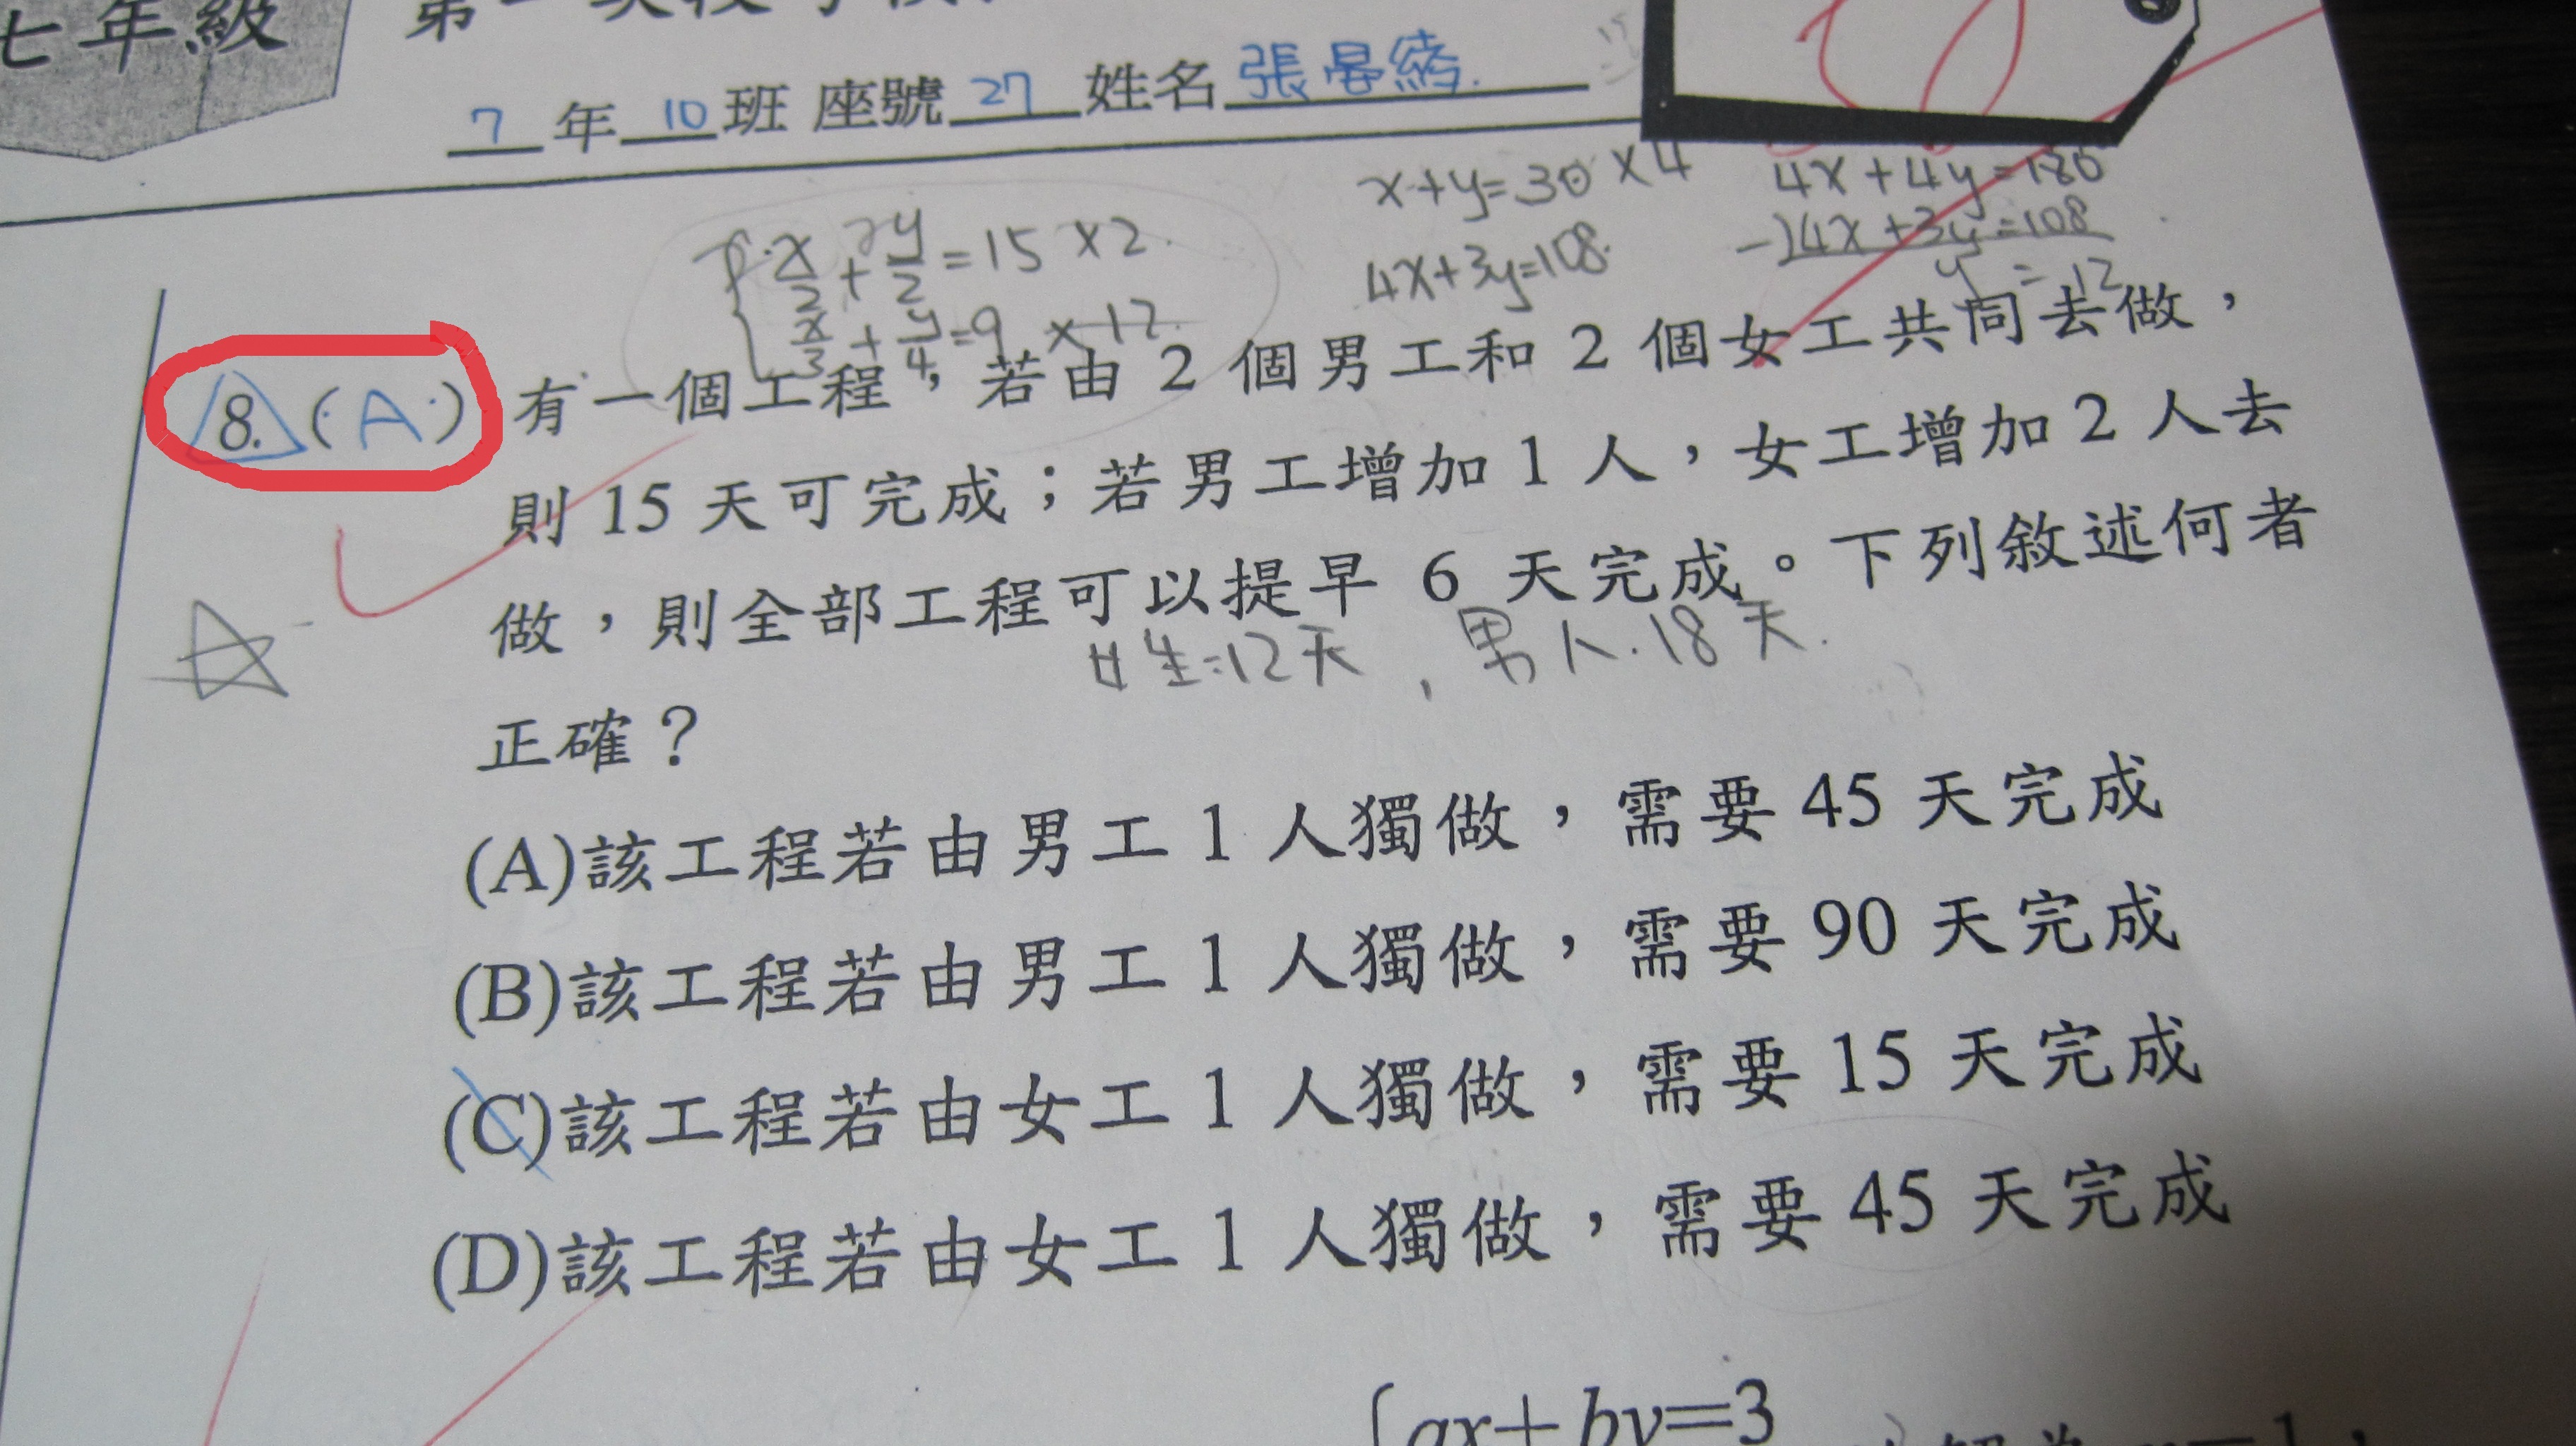 七年級
7 年 10 班 座號 27 姓名 張
x+y=30 ×4
4x+3y=108
4x+4y=120
-) 4x+3y=108
y = 12
x/2 + y/2 = 15 ×2
x/3 + y/4 = 9 ×12
8. (A) 有一個工程，若由 2 個男工和 2 個女工共同去做，
則 15 天可完成；若男工增加 1 人，女工增加 2 人去
做，則全部工程可以提早 6 天完成。下列敘述何者
女生=12天，男人.18天.
正確？
(A)該工程若由男工 1 人獨做，需要 45 天完成
(B)該工程若由男工 1 人獨做，需要 90 天完成
(C)該工程若由女工 1 人獨做，需要 15 天完成
(D)該工程若由女工 1 人獨做，需要 45 天完成
ax+by=3